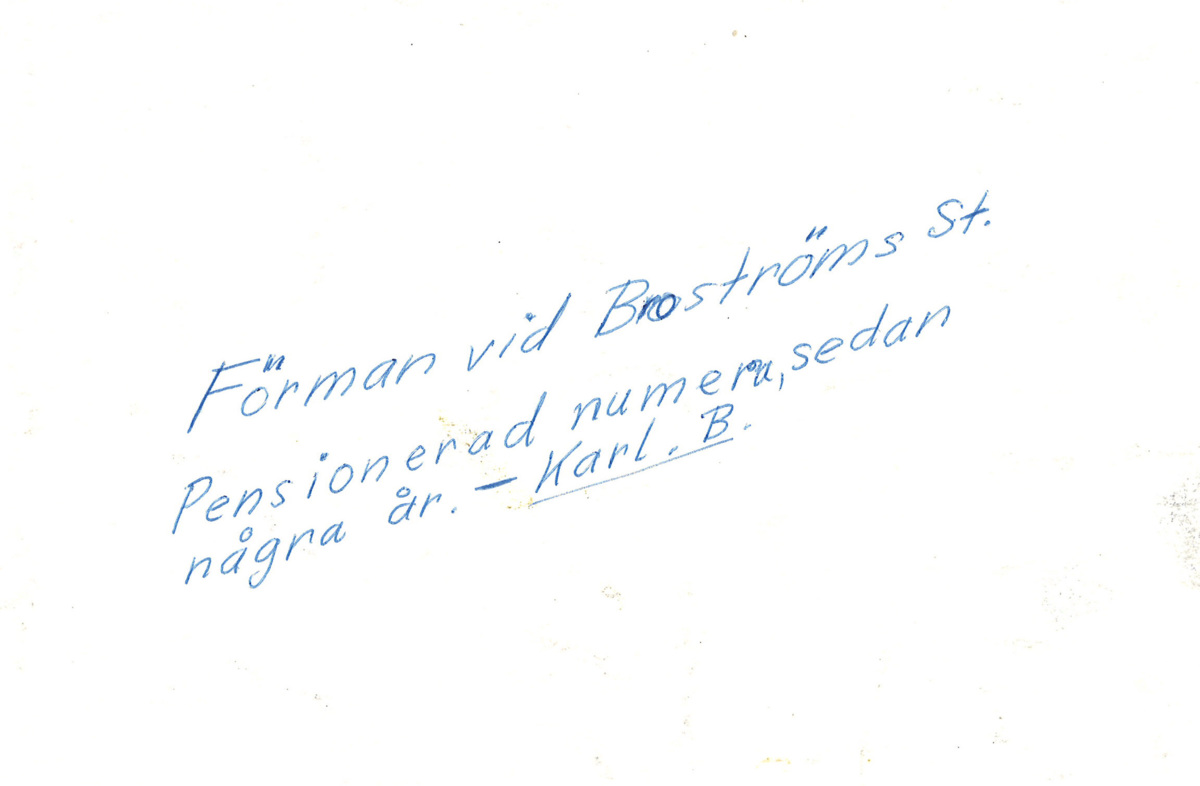 Förman vid Broströms St.
Pensionerad numera, sedan
några år. – Karl. B.